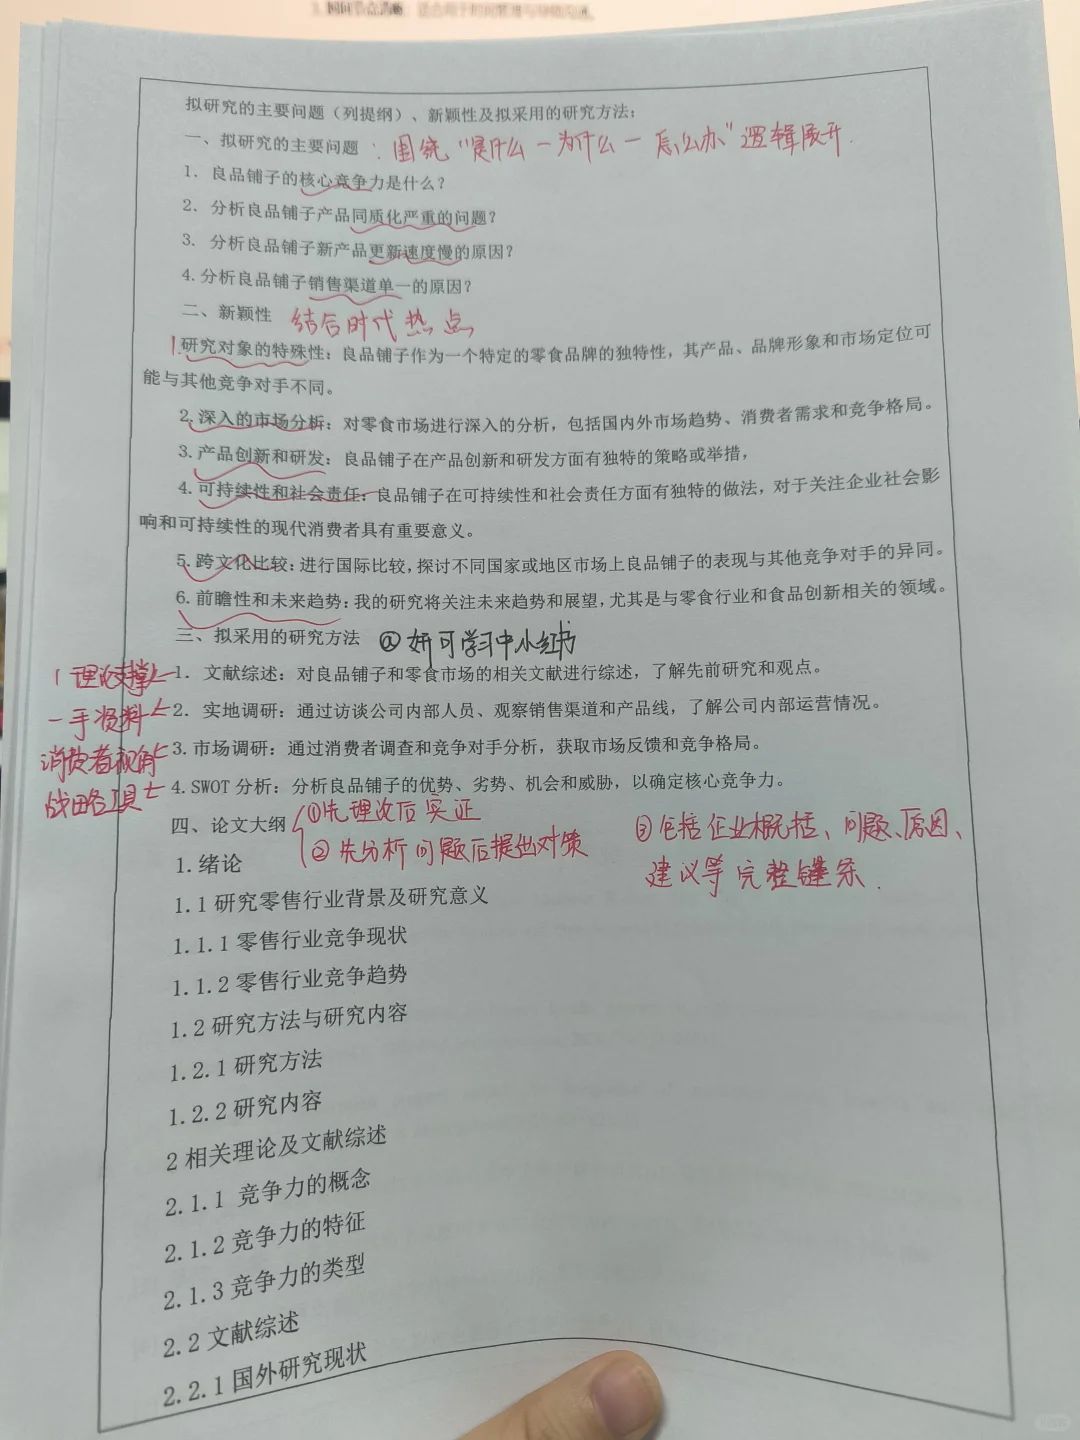 3. 时间节点清晰：适合用于时间管理与导师沟通。
拟研究的主要问题（列提纲）、新颖性及拟采用的研究方法：
一、拟研究的主要问题 ：围绕“是什么－为什么－怎么办”逻辑展开．
1. 良品铺子的核心竞争力是什么？
2. 分析良品铺子产品同质化严重的问题？
3. 分析良品铺子新产品更新速度慢的原因？
4.分析良品铺子销售渠道单一的原因？
二、新颖性 结合时代热点
1.研究对象的特殊性：良品铺子作为一个特定的零食品牌的独特性，其产品、品牌形象和市场定位可
能与其他竞争对手不同。
2.深入的市场分析：对零食市场进行深入的分析，包括国内外市场趋势、消费者需求和竞争格局。
3.产品创新和研发：良品铺子在产品创新和研发方面有独特的策略或举措，
4.可持续性和社会责任：良品铺子在可持续性和社会责任方面有独特的做法，对于关注企业社会影
响和可持续性的现代消费者具有重要意义。
5.跨文化比较：进行国际比较，探讨不同国家或地区市场上良品铺子的表现与其他竞争对手的异同。
6.前瞻性和未来趋势：我的研究将关注未来趋势和展望，尤其是与零食行业和食品创新相关的领域。
三、拟采用的研究方法 @妍可学习中小红书
理论支撑 1. 文献综述：对良品铺子和零食市场的相关文献进行综述，了解先前研究和观点。
一手资料 2. 实地调研：通过访谈公司内部人员、观察销售渠道和产品线，了解公司内部运营情况。
消费者视角 3.市场调研：通过消费者调查和竞争对手分析，获取市场反馈和竞争格局。
战略工具 4.SWOT 分析：分析良品铺子的优势、劣势、机会和威胁，以确定核心竞争力。
四、论文大纲 ①先理论后实证 ③包括企业概括、问题、原因、
②先分析问题后提出对策 建议等完整链条．
1.绪论
1.1 研究零售行业背景及研究意义
1.1.1 零售行业竞争现状
1.1.2 零售行业竞争趋势
1.2 研究方法与研究内容
1.2.1 研究方法
1.2.2 研究内容
2 相关理论及文献综述
2.1.1 竞争力的概念
2.1.2 竞争力的特征
2.1.3 竞争力的类型
2.2 文献综述
2.2.1 国外研究现状